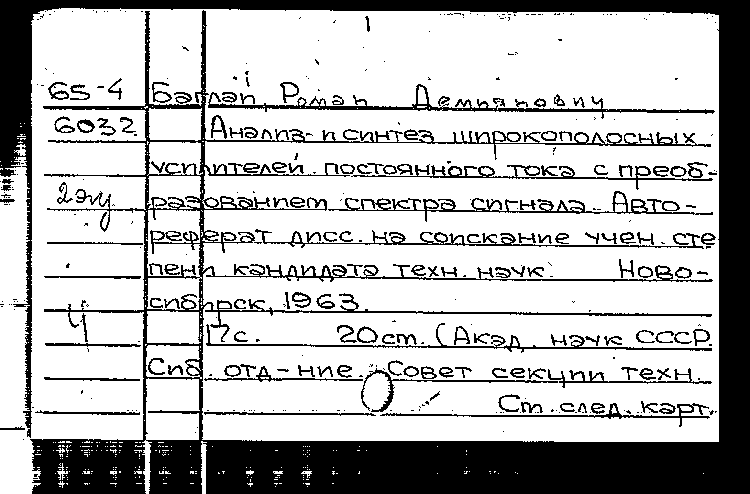 65-4 Баглай, Роман Демьянович
6032 Анализ и синтез широкополосных
усилителей постоянного тока с преоб-
2 эку разованием спектра сигнала. Авто-
реферат дисс. на соискание учен. сте
пени кандидата техн. наук. Ново-
сибирск, 1963.
Ч 17с. 20ст. (Акад. наук СССР.
Сиб. отд-ние. Совет секции техн.
См. след. карт.